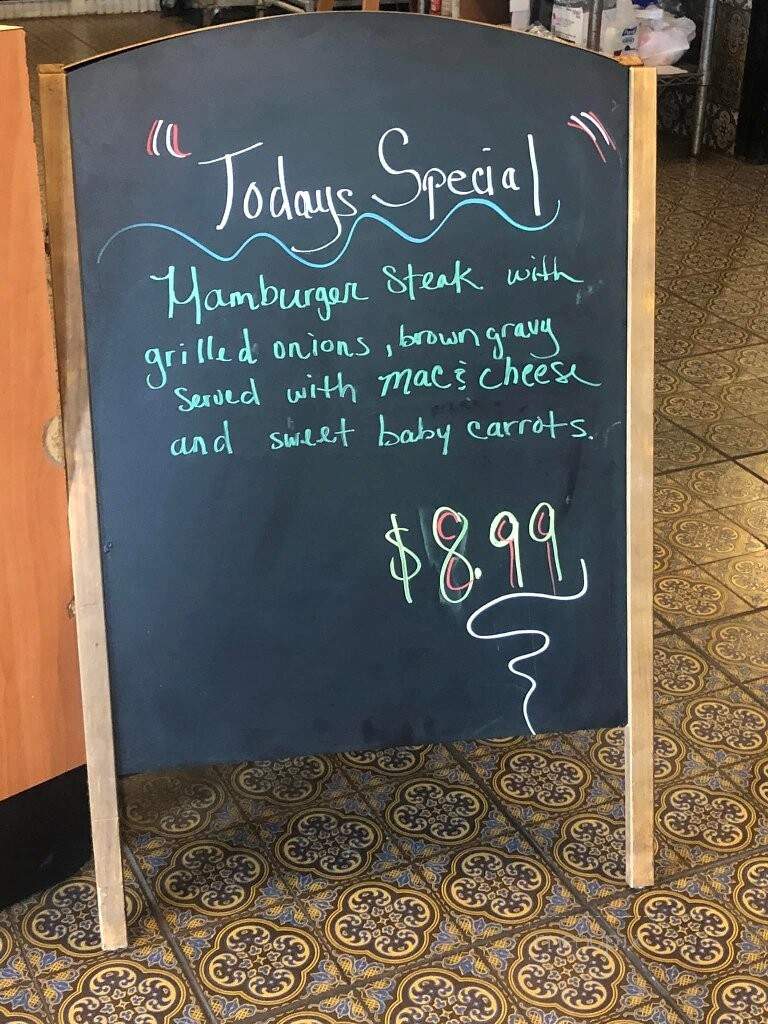 "Todays Special"
Hamburger steak with
grilled onions, brown gravy
served with mac & cheese
and sweet baby carrots.
$8.99